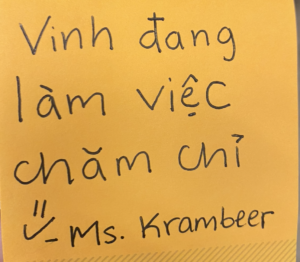 Vinh đang
làm việc
chăm chỉ
- Ms. Krambeer